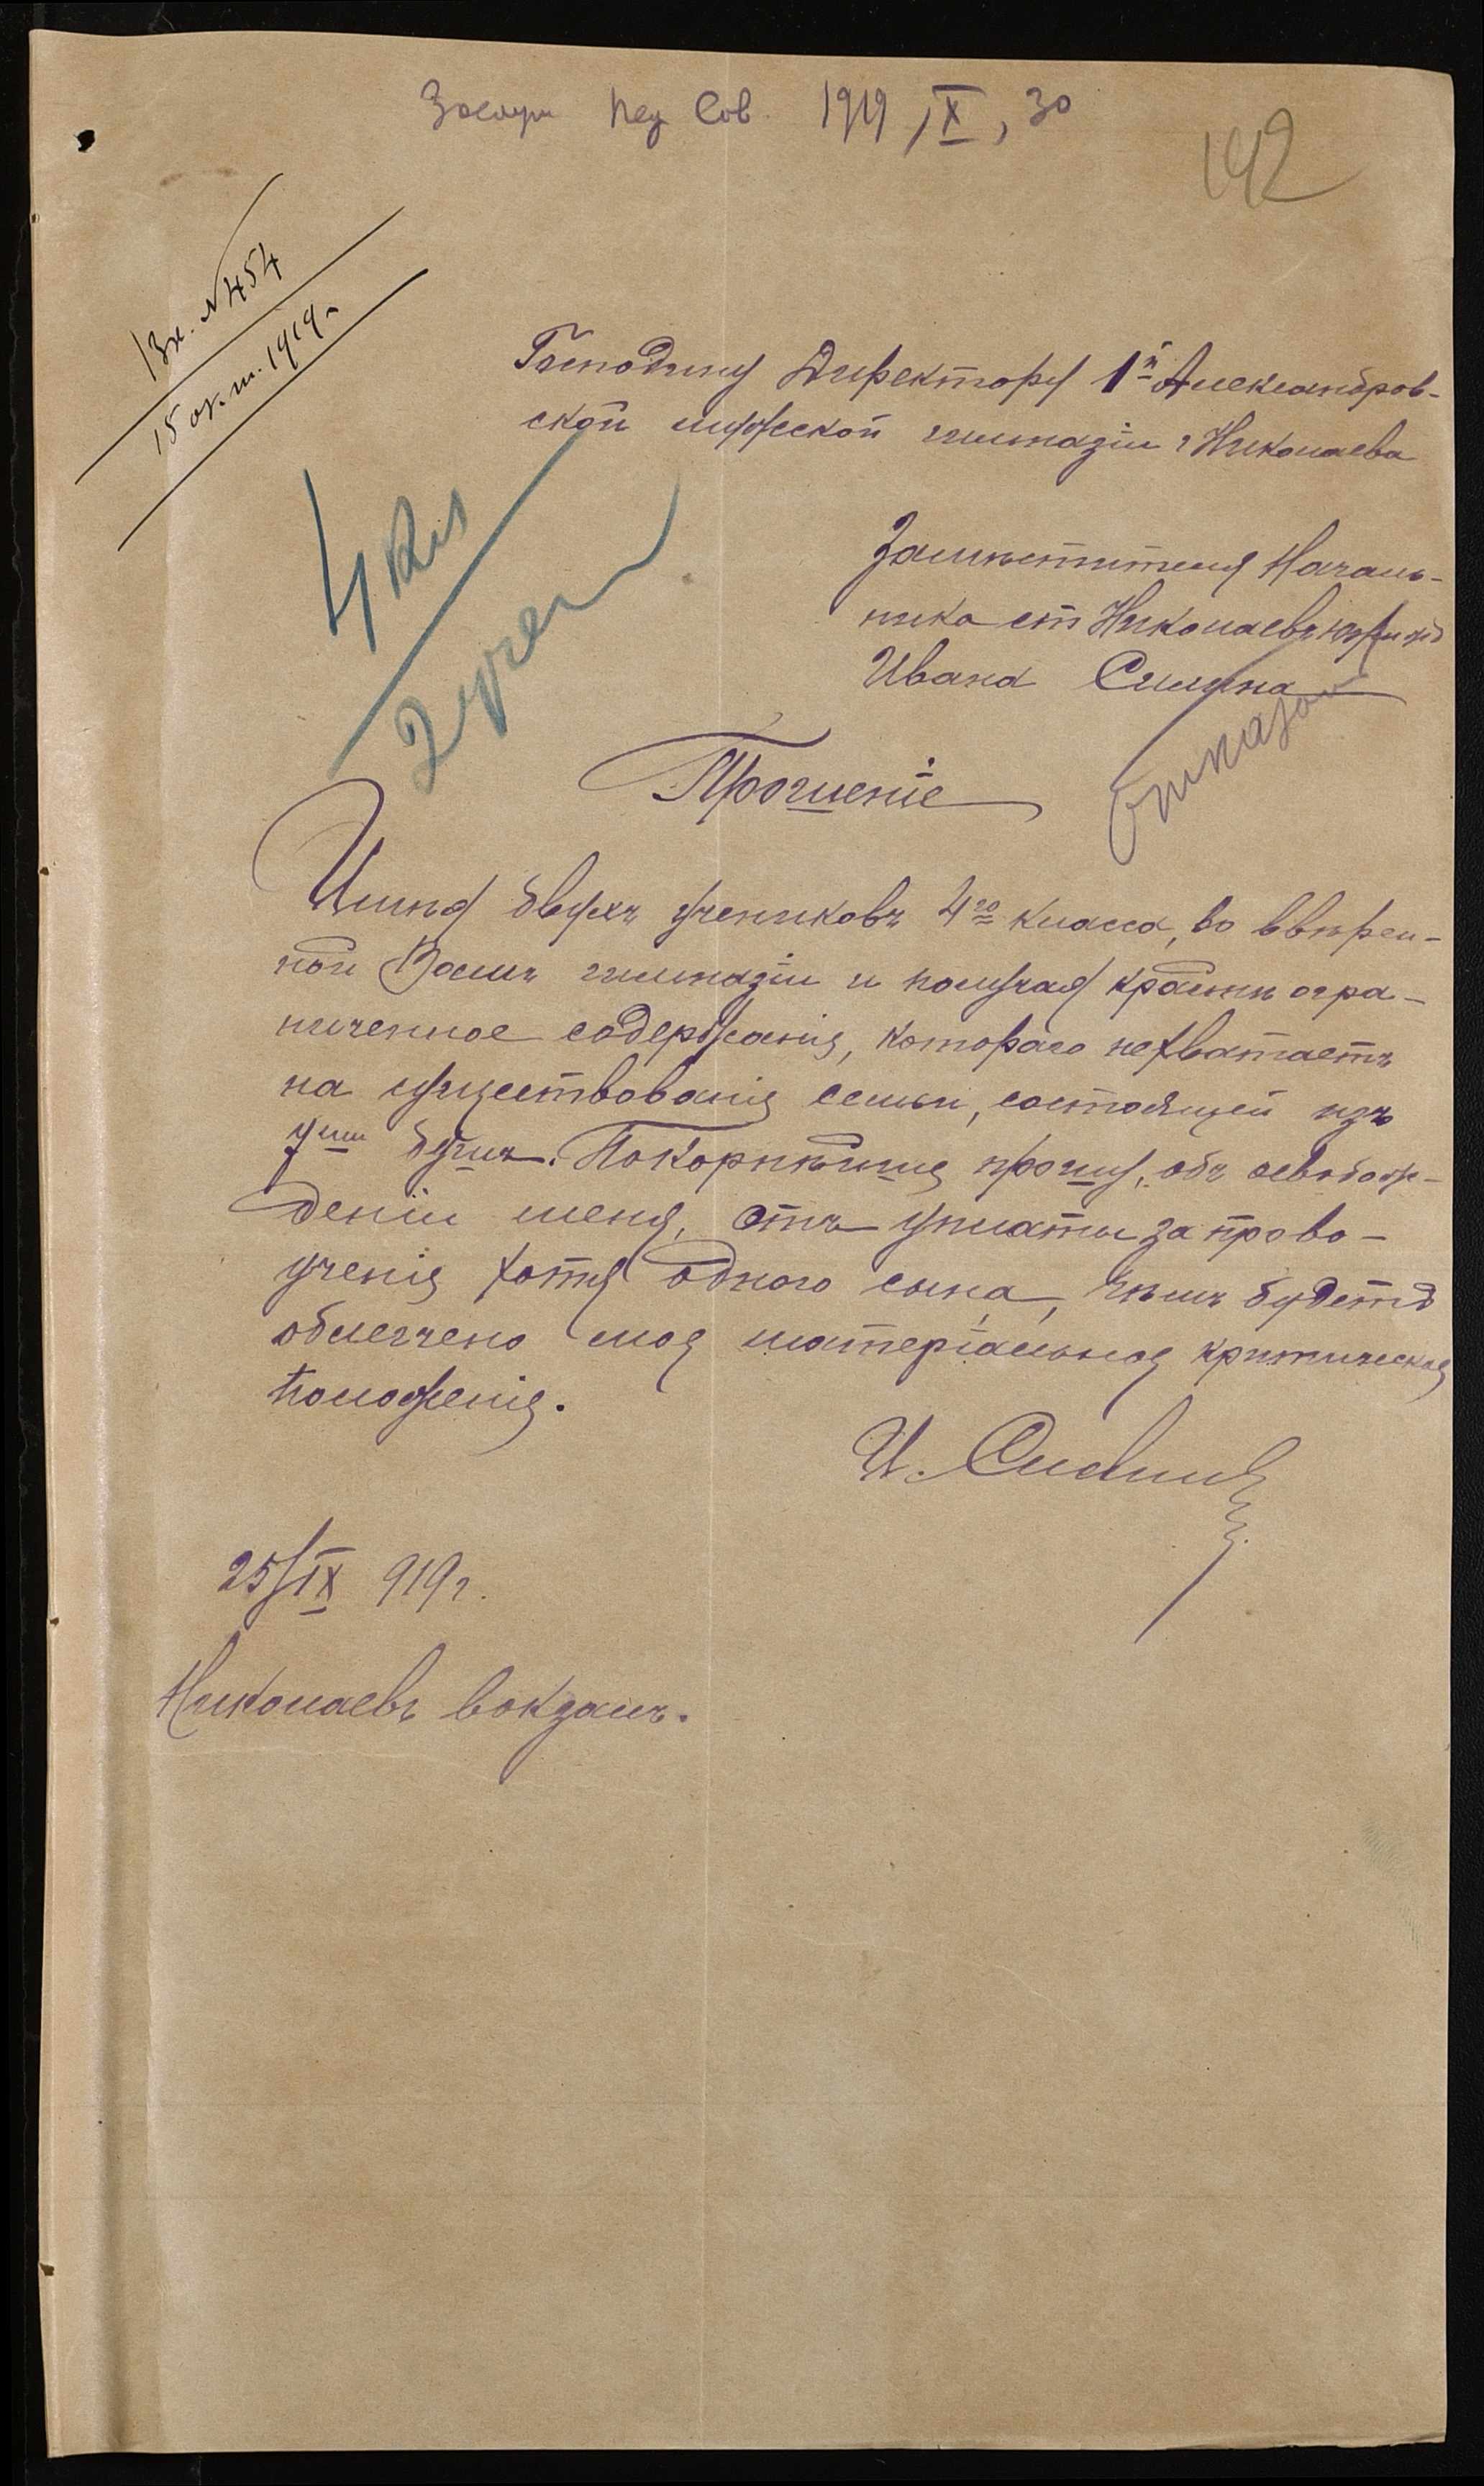 Пед Сов. 1919, IX, 30
192
Вх. №454
15 окт. 1919 г
Господину Директору 1й Александров-
ской мужской гимназіи г Николаева
4 кл
2 учен
Заместителя Началь-
ника ст Николаевъ
Ивана
Отказать
Прошеніе
Имѣя двухъ учениковъ 4го класса, во ввѣрен-
ной Вамъ гимназіи и получая крайнѣ огра-
ниченное содержанія, котораго нехватаетъ
на существованія семьи, состоящей изъ
7ми душъ. Покорнѣйше прошу, объ освобож-
деніи меня, отъ уплаты за право-
ученія хотя одного сына, чѣмъ будетъ
облегчено моя матеріальная критическая
положенія.
И.
25/IX 919 г.
Николаевъ вокзалъ.